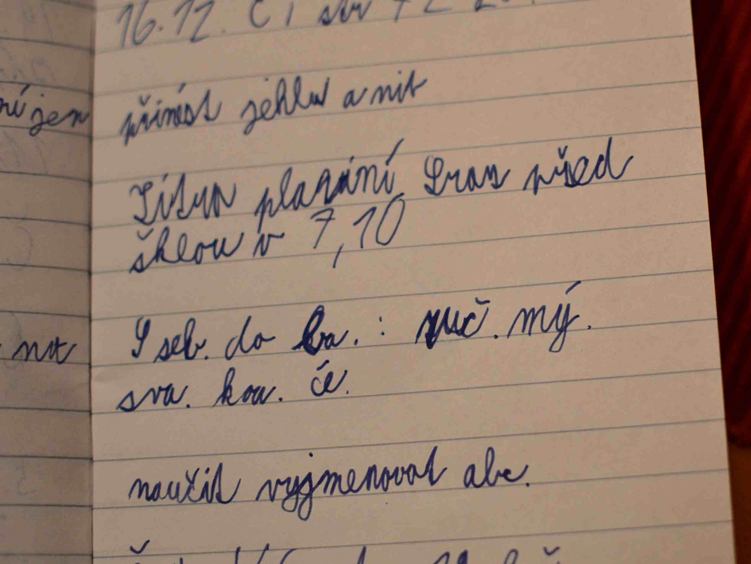 16.12. Čj str 72
ní jen
přinést jehlu a nit
Zítra plavání Sraz před
školou v 7,10
S seb. do ba. : ruč. mý.
sva. kou. če.
naučit vyjmenovat abc.